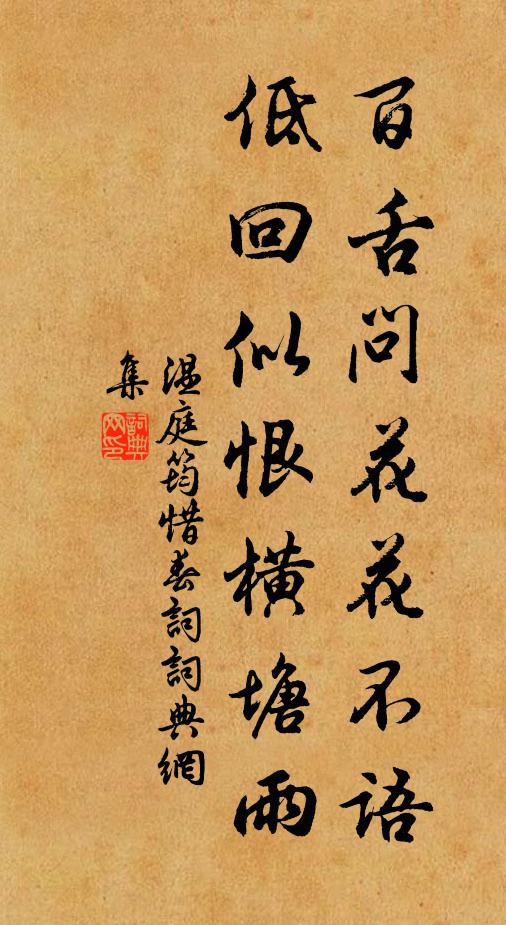 百舌問花花不語
低回似恨橫塘雨
温庭筠惜春詞詞典網
集
詞典
网印